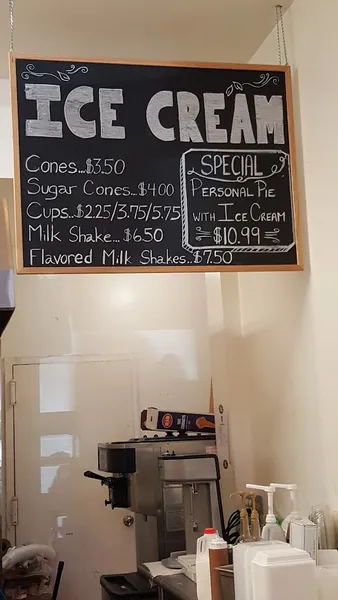 ICE CREAM
Cones...$3.50
Sugar Cones...$4.00
Cups..$2.25/3.75/5.75
Milk Shake... $6.50
Flavored Milk Shakes..$7.50
SPECIAL
PERSONAL PIE
WITH ICE CREAM
$10.99